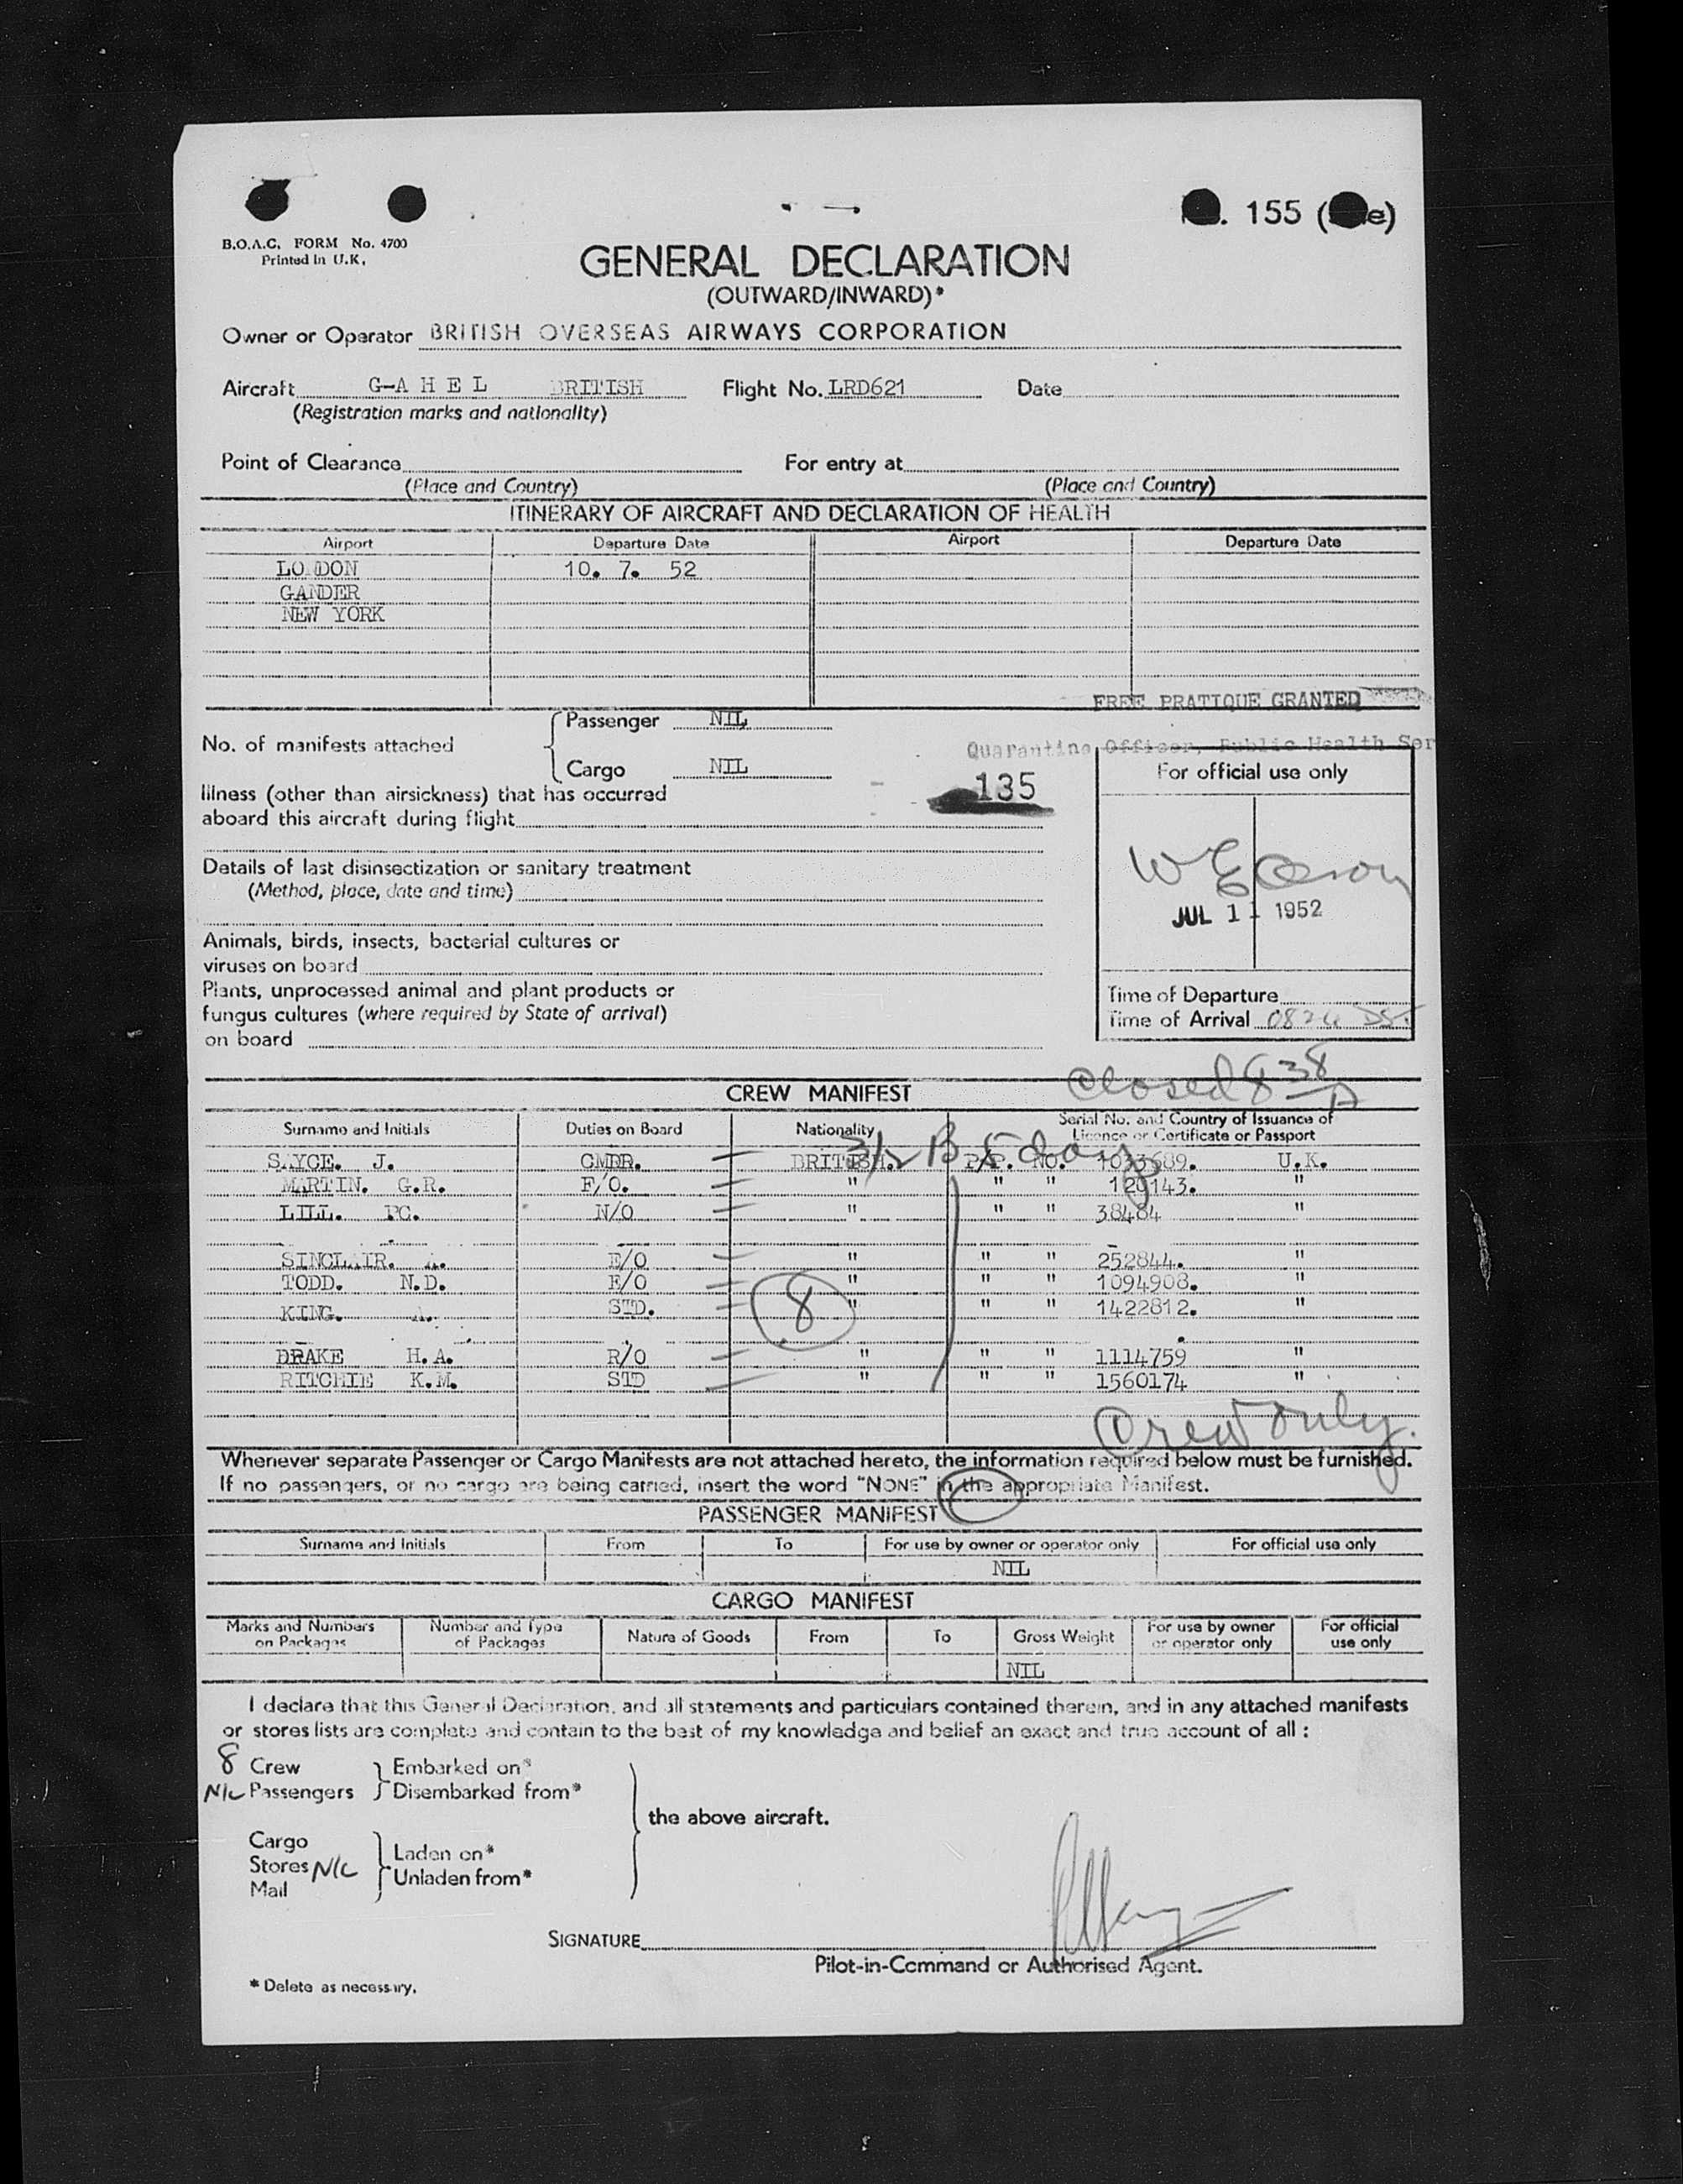 . 155 (
B.O.A.C. FORM No. 4700
Printed in U.K.
GENERAL DECLARATION
(OUTWARD/INWARD)*
Owner or Operator BRITISH OVERSEAS AIRWAYS CORPORATION
Aircraft G-A H E L BRITISH Flight No. LRD621 Date
(Registration marks and nationality)
Point of Clearance For entry at
(Place and Country) (Place and Country)
ITINERARY OF AIRCRAFT AND DECLARATION OF HEALTH
Airport Departure Date Airport Departure Date
LONDON 10. 7. 52
GANDER
NEW YORK
FREE PRATIQUE GRANTED
Passenger NIL
No. of manifests attached
Quarantine Officer, Public Health Ser
Cargo NIL
For official use only
135
Illness (other than airsickness) that has occurred
aboard this aircraft during flight
Details of last disinsectization or sanitary treatment
(Method, place, date and time)
JUL 11 1952
Animals, birds, insects, bacterial cultures or
viruses on board
Plants, unprocessed animal and plant products or
fungus cultures (where required by State of arrival)
on board
Time of Departure
Time of Arrival 0824 DST
Closed 838 A
CREW MANIFEST
Surname and Initials Duties on Board Nationality Serial No. and Country of Issuance of
Licence or Certificate or Passport
SAYCE. J. CMDR. BRITISH. P.P. NO. 1033689. U.K.
MARTIN. G.R. F/O. " " " 120143. "
LILL. PC. N/O " " " 38484 "
SINCLAIR. A. E/O " " " 252844. "
TODD. N.D. E/O " " " 1094908. "
KING. A. STD. 8 " " " 1422812. "
DRAKE H.A. R/O " " " 1114759 "
RITCHIE K.M. STD " " " 1560174 "
Crew only.
Whenever separate Passenger or Cargo Manifests are not attached hereto, the information required below must be furnished.
If no passengers, or no cargo are being carried, insert the word "NONE" in the appropriate Manifest.
PASSENGER MANIFEST
Surname and Initials From To For use by owner or operator only For official use only
NIL
CARGO MANIFEST
Marks and Numbers on Packages Number and Type of Packages Nature of Goods From To Gross Weight For use by owner or operator only For official use only
NIL
I declare that this General Declaration, and all statements and particulars contained therein, and in any attached manifests
or stores lists are complete and contain to the best of my knowledge and belief an exact and true account of all :
8 Crew Embarked on*
NIL Passengers Disembarked from*
the above aircraft.
Cargo
Laden on*
Stores NIL
Unladen from*
Mail
SIGNATURE
Pilot-in-Command or Authorised Agent.
* Delete as necessary.